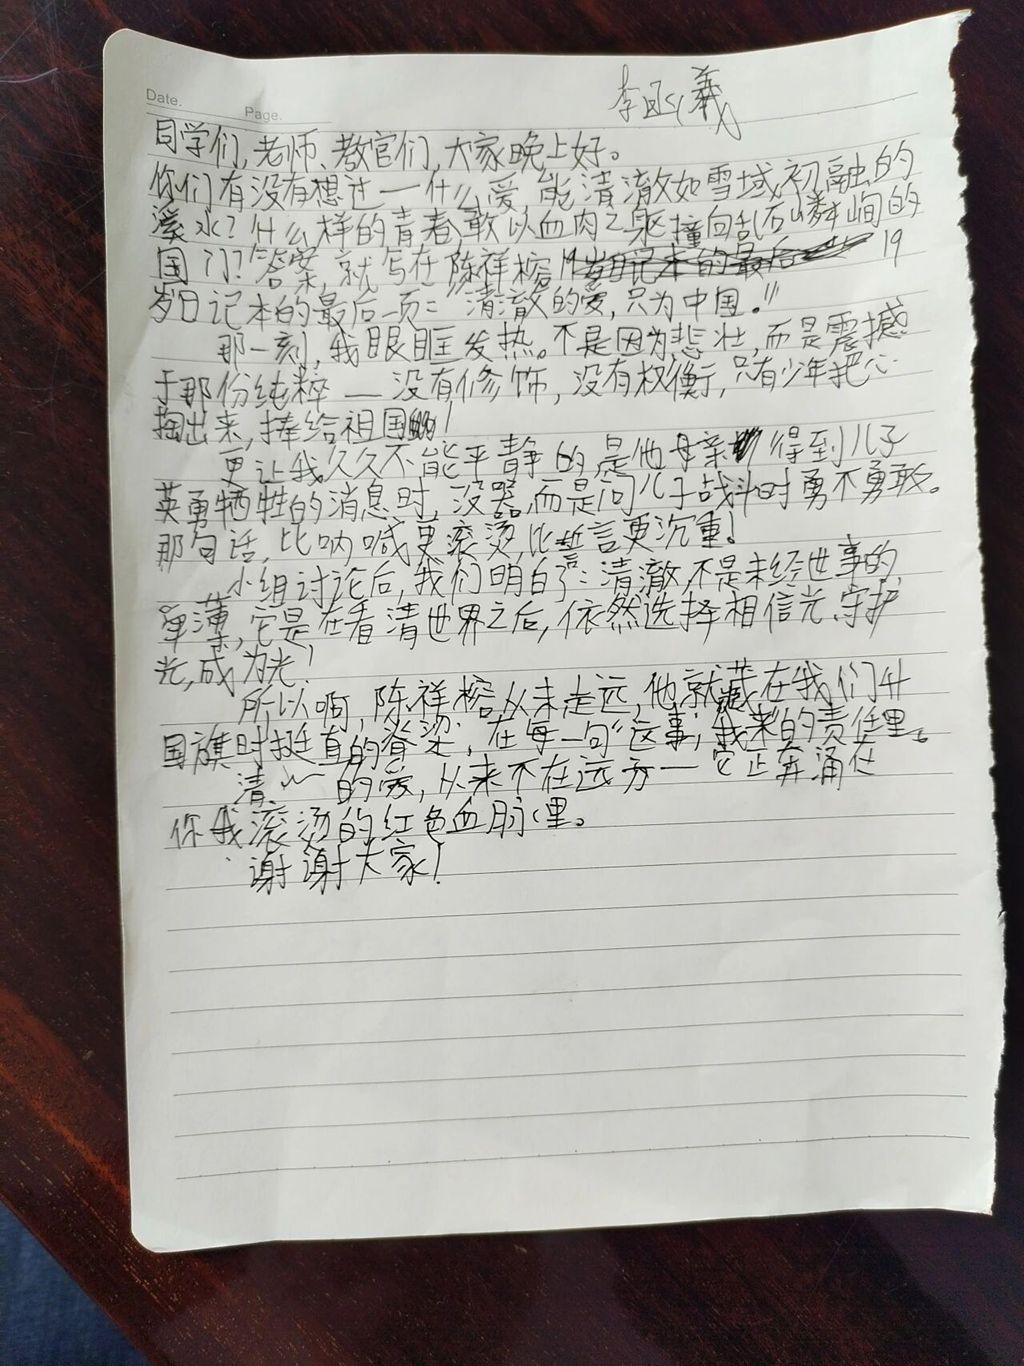 Date.
Page.
李函羲
同学们,老师、教官们,大家晚上好。
你们有没有想过一什么爱,能清澈如雪域初融的
溪水?什么样的青春,敢以血肉之躯撞向乱石嶙峋的
国门?答案,就写在陈祥榕19岁日记本的最后 19
岁日记本的最后一页:“清澈的爱,只为中国。”
那一刻,我眼眶发热。不是因为悲壮,而是震撼
于那份纯粹——没有修饰,没有权衡,只有少年把心
掏出来,捧给祖国!
更让我久久不能平静的是他母亲 得到儿子
英勇牺牲的消息时,没哭,而是问儿子战斗时勇不勇敢。
那句话,比呐喊更滚烫,比誓言更沉重!
小组讨论后,我们明白了:清澈,不是未经世事的
单薄,它是在看清世界之后,依然选择相信光、守护
光,成为光!
所以啊,陈祥榕从未走远,他就藏在我们升
国旗时挺直的脊梁,在每一句“这事,我来”的责任里。
清 的爱,从来不在远方一它正奔涌在
你我滚烫的红色血脉里。
谢谢大家!